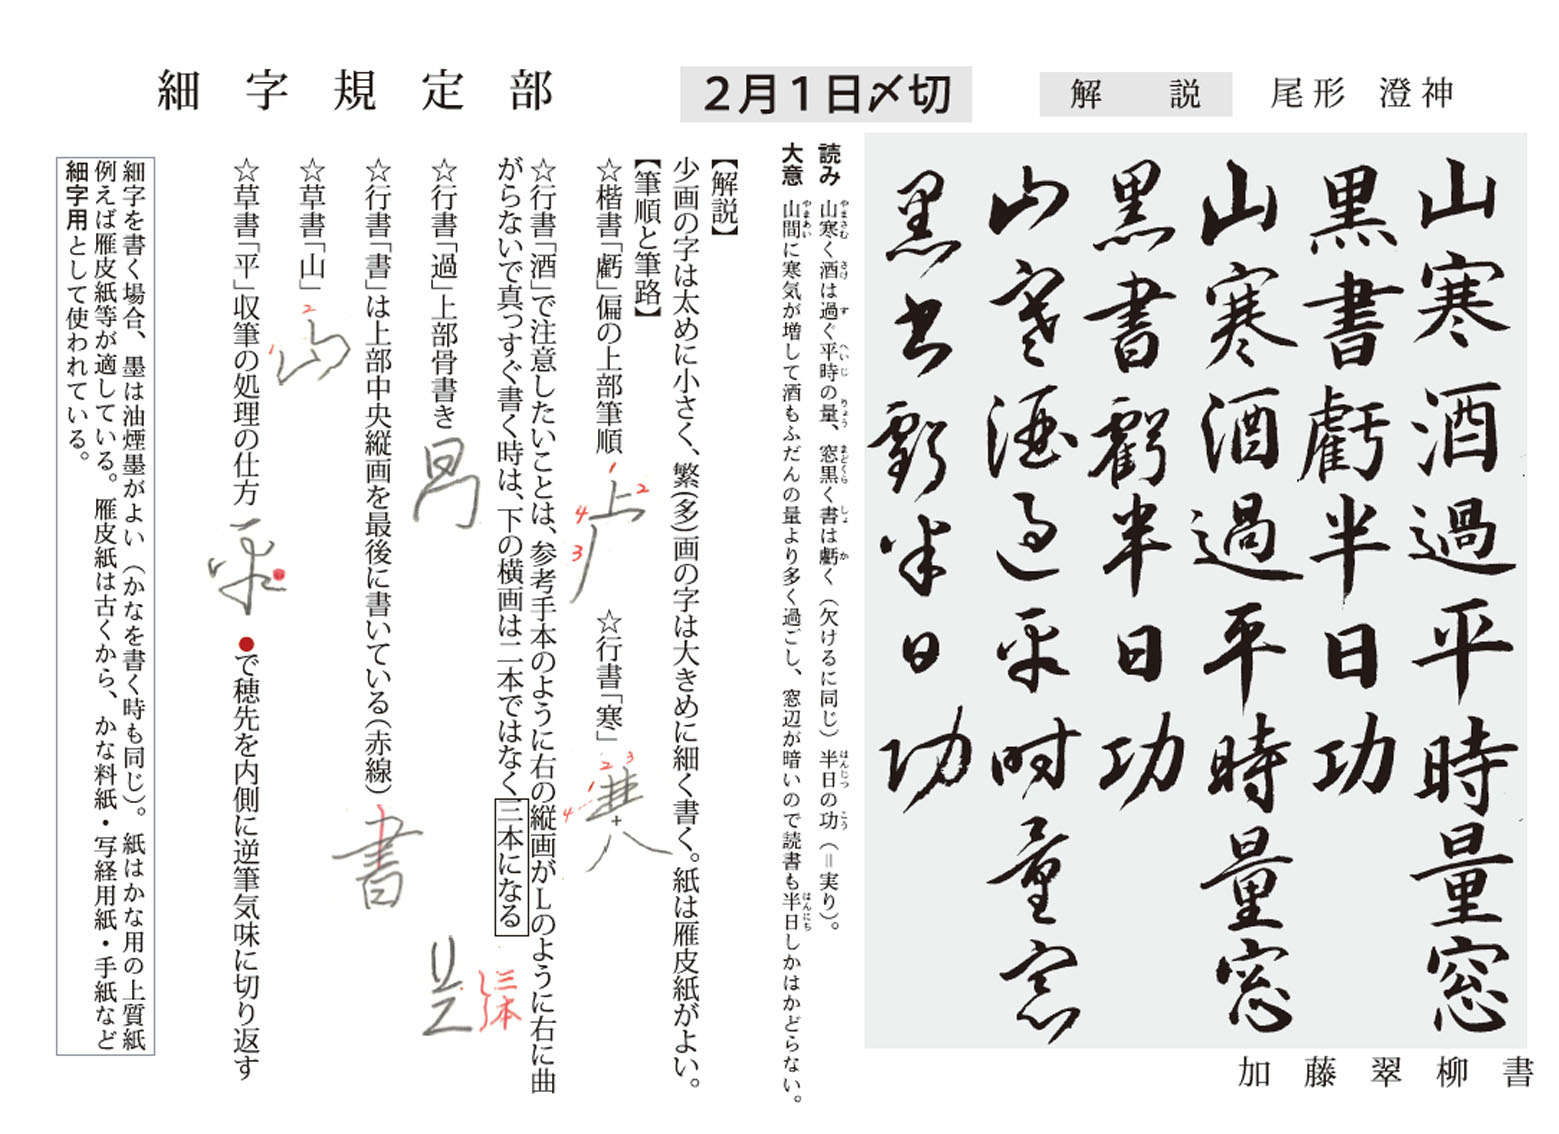 細字規定部
2月1日〆切
解説
尾形 澄神
山寒酒過平時量窓
黒書虧半日功
山寒酒過平時量窓
黒書虧半日功
山寒酒過平時量窓
黒書虧半日功
加藤翠柳書
読み 山寒く酒は過ぐ平時の量、窓黒く書は虧く（欠けるに同じ）半日の功（＝実り）。
やまさむ さけ す へいじ りょう まどくら しょ か はんじつ こう
大意 山間に寒気が増して酒もふだんの量より多く過ごし、窓辺が暗いので読書も半日しかはかどらない。
やまあい はんにち
【解説】
少画の字は太めに小さく、繁(多)画の字は大きめに細く書く。紙は雁皮紙がよい。
【筆順と筆路】
☆楷書「虧」偏の上部筆順
1 2 4 3
☆行書「寒」
1 2 3 4
☆行書「酒」で注意したいことは、参考手本のように右の縦画がLのように右に曲
がらないで真っすぐ書く時は、下の横画は二本ではなく三本になる
三本
☆行書「過」上部骨書き
☆行書「書」は上部中央縦画を最後に書いている(赤線)
書
☆草書「山」
1 2
山
☆草書「平」収筆の処理の仕方
平
●で穂先を内側に逆筆気味に切り返す
細字を書く場合、墨は油煙墨がよい（かなを書く時も同じ）。紙はかな用の上質紙
例えば雁皮紙等が適している。雁皮紙は古くから、かな料紙・写経用紙・手紙など
細字用として使われている。